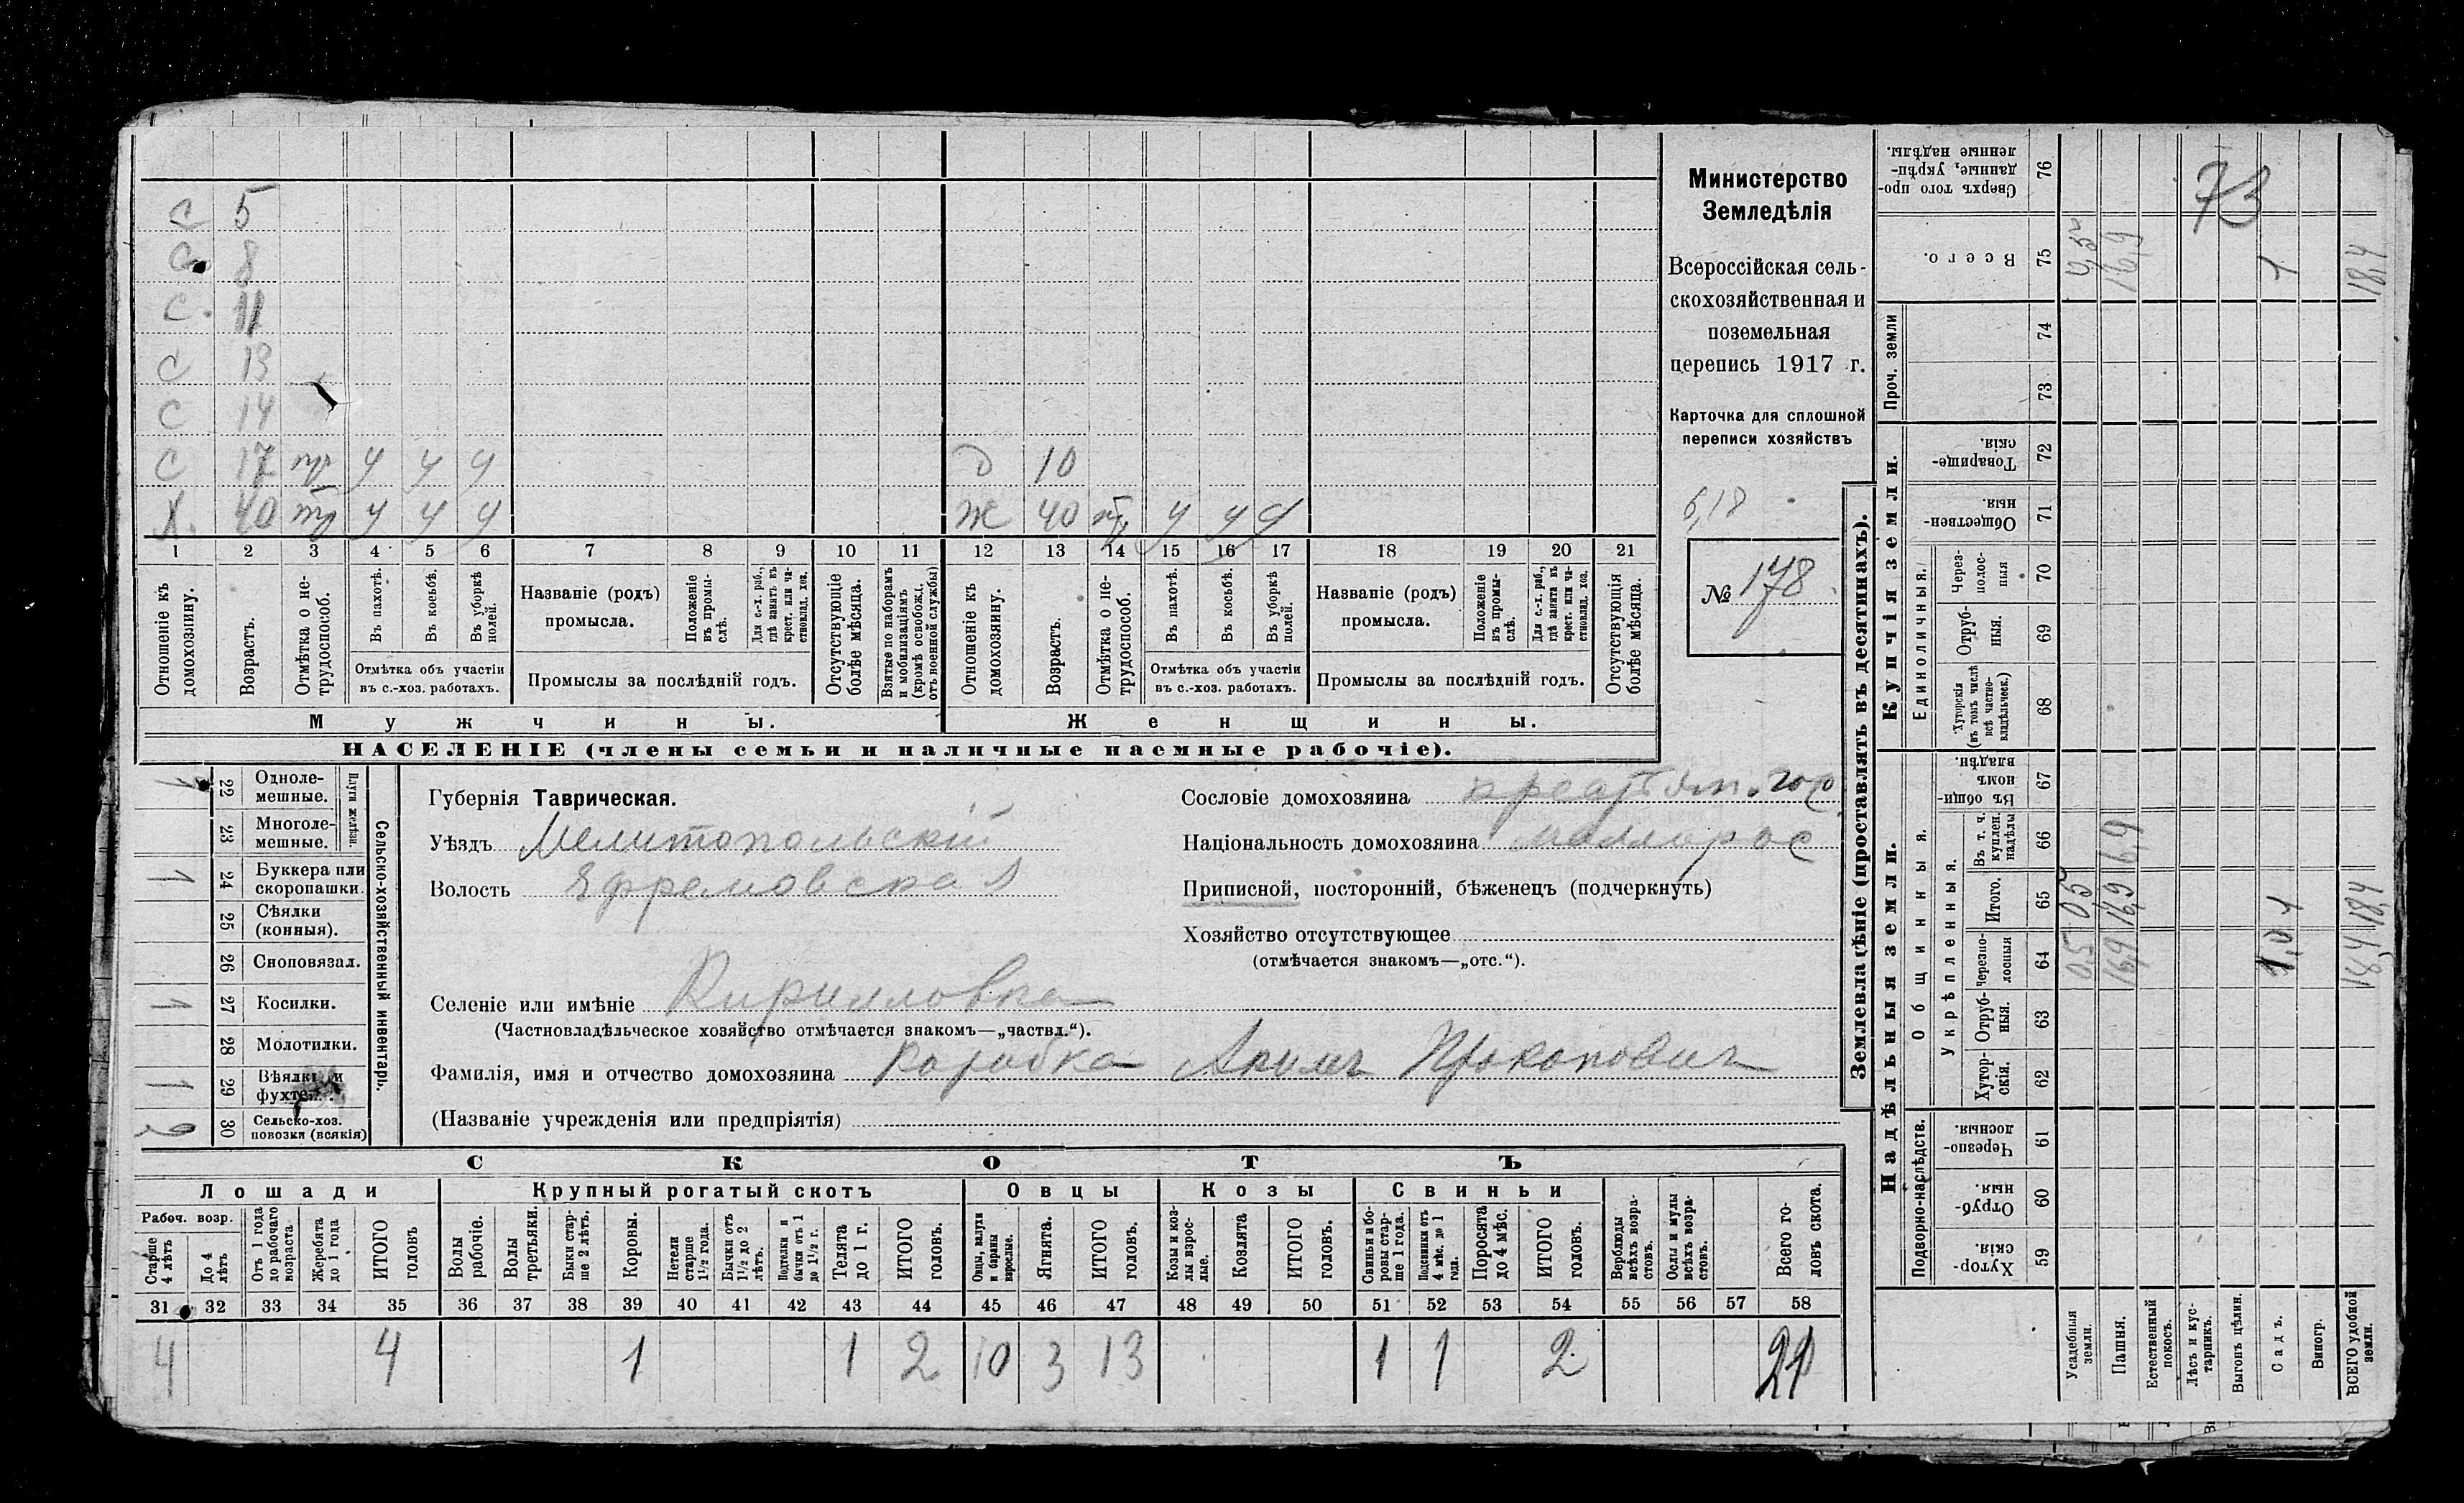 с 5
с 8
с. 11
с 13
с 14
с 17 тр у у у д 10
Х. 40 тр у у у ж 40 тр у у у
1 2 3 4 5 6 7 8 9 10 11 12 13 14 15 16 17 18 19 20 21
Отношеніе къ домохозяину.
Возрастъ.
Отмѣтка о нетрудоспособ.
Въ пахотѣ.
Въ косьбѣ.
Въ уборкѣ полей.
Отмѣтка объ участіи
въ с.-хоз. работахъ.
Названіе (родъ)
промысла.
Положеніе въ промыслѣ.
Для с.-х. раб., гдѣ занятъ въ крест. или частновлад. хоз.
Промыслы за послѣдній годъ.
Отсутствующіе болѣе мѣсяца.
Взятые по наборамъ и мобилизаціямъ (кромѣ освобожд. отъ военной службы)
Отношеніе къ домохозяину.
Возрастъ.
Отмѣтка о нетрудоспособ.
Въ пахотѣ.
Въ косьбѣ.
Въ уборкѣ полей.
Отмѣтка объ участіи
въ с.-хоз. работахъ.
Названіе (родъ)
промысла.
Положеніе въ промыслѣ.
Для с.-х. раб., гдѣ занята въ крест. или частновлад. хоз.
Промыслы за послѣдній годъ.
Отсутствующія болѣе мѣсяца.
Мужчины. Женщины.
НАСЕЛЕНІЕ (члены семьи и наличные наемные рабочіе).
Министерство
Земледѣлія
Всероссійская сель-
скохозяйственная и
поземельная
перепись 1917 г.
Карточка для сплошной
переписи хозяйствъ
6,18
№ 178.
1 22 Одноле-
мешные.
23 Многоле-
мешные.
Плуги желѣзн.
1 24 Буккера или
скоропашки.
25 Сѣялки
(конныя).
26 Сноповязал.
1 27 Косилки.
28 Молотилки.
1 29 Вѣялки и
фухтели.
2 30 Сельско-хоз.
повозки (всякія)
Сельско-хозяйственный инвентарь.
Губернія Таврическая.
Уѣздъ Мелитопольскій
Волость Ефремовская
Сословіе домохозяина
Національность домохозяина малорос
Приписной, посторонній, бѣженецъ (подчеркнуть)
Хозяйство отсутствующее
(отмѣчается знакомъ—„отс.“).
Селеніе или имѣніе Кирилловка
(Частновладѣльческое хозяйство отмѣчается знакомъ—„частвл.“).
Фамилія, имя и отчество домохозяина Коробка Акимъ Прокоповичъ
(Названіе учрежденія или предпріятія)
СКОТЪ
Лошади Крупный рогатый скотъ Овцы Козы Свиньи
Рабоч. возр.
Старше 4 лѣтъ
До 4 лѣтъ
Отъ 1 года до рабочаго возраста
Жеребята до 1 года
ИТОГО головъ
Волы рабочіе.
Волы третьяки.
Быки старше 2 лѣтъ.
Коровы.
Нетели старше 1½ года.
Бычки отъ 1½ до 2 лѣтъ.
Подтелки и бычки отъ 1 до 1½ г.
Телята до 1 г.
ИТОГО головъ.
Овцы, валухи и бараны взрослые.
Ягнята.
ИТОГО головъ.
Козы и козлы взрослые.
Козлята
ИТОГО головъ.
Свиньи и боровы старше 1 года.
Подсвинки отъ 4 мѣс. до 1 года.
Поросята до 4 мѣс.
ИТОГО головъ.
Верблюды всѣхъ возрастовъ.
Ослы и мулы всѣхъ возрастовъ.
Всего головъ скота.
31 32 33 34 35 36 37 38 39 40 41 42 43 44 45 46 47 48 49 50 51 52 53 54 55 56 57 58
4 4 1 1 2 10 3 13 1 1 2 21
Землевладѣніе (проставлять въ десятинахъ).
Надѣльныя земли. Купчія земли. Проч. земли
Подворно-наслѣдств. Общинныя. Укрѣпленныя. Единоличныя.
Хуторскія 59
Отрубныя. 60
Черезполосныя. 61
Хуторскія. 62
Отрубныя. 63
Черезполосныя 64
Итого. 65
Въ т. ч. куплен. надѣлы 66
Въ общинномъ владѣн. 67
Хуторскія (въ томъ числѣ всѣ частновладѣльческ.) 68
Отрубныя. 69
Черезполосныя 70
Общественныя 71
Товарищескія. 72
73
74
Всего. 75
Сверхъ того проданные, укрѣпленные надѣлы. 76
73
Усадебныя земли. 0,5 0,5
Пашня. 16,9 16,9 6,9 16,9
Естественный покосъ.
Лѣсъ и кустарникъ.
Выгонъ цѣлин.
Садъ. 1,0 1 1
Виногр.
ВСЕГО удобной земли. 18,4 18,4 18,4